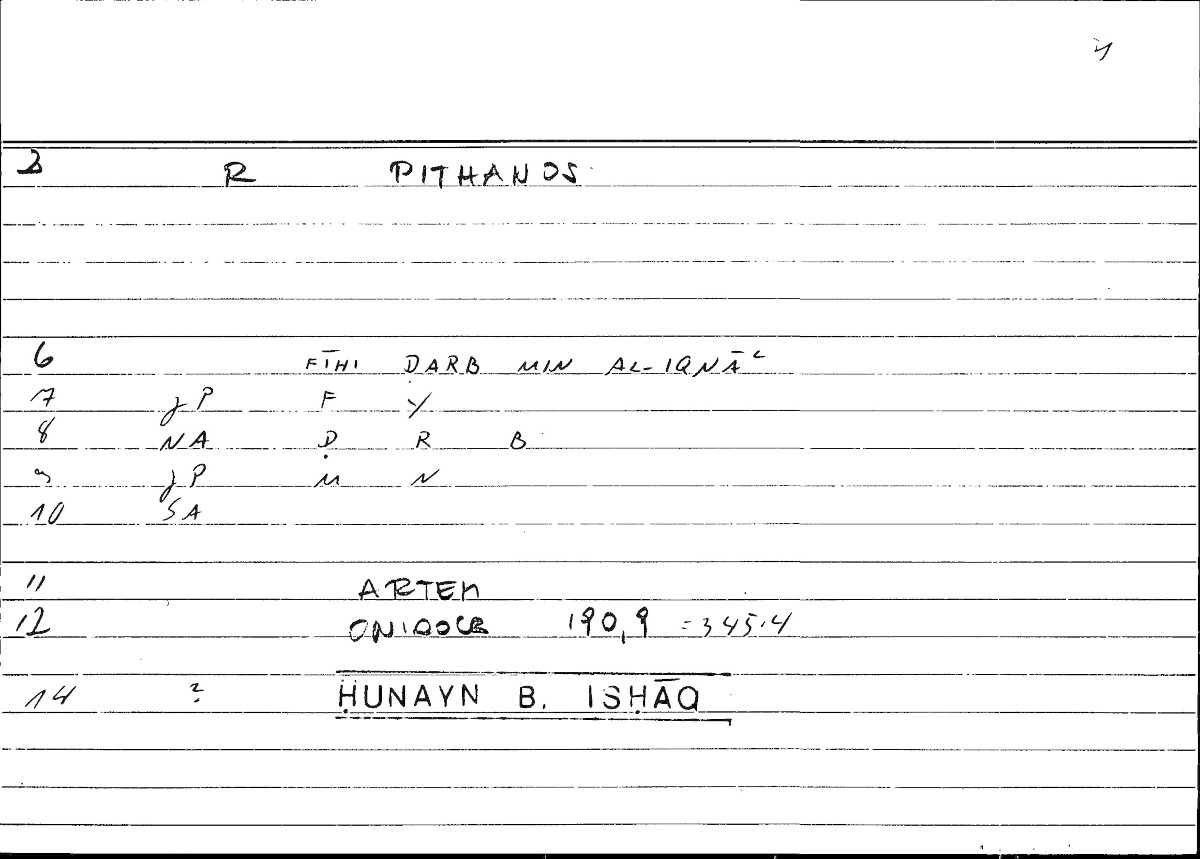 4
3 R PITHANOS
6 FĪHI ḌARB MIN AL-IQNĀʿ
7 JP F Y
8 NA Ḍ R B
9 JP M N
10 SA
11 ARTEM
12 ONIROCR 190,9 = 345.4
14 ? ḤUNAYN B. ISḤĀQ